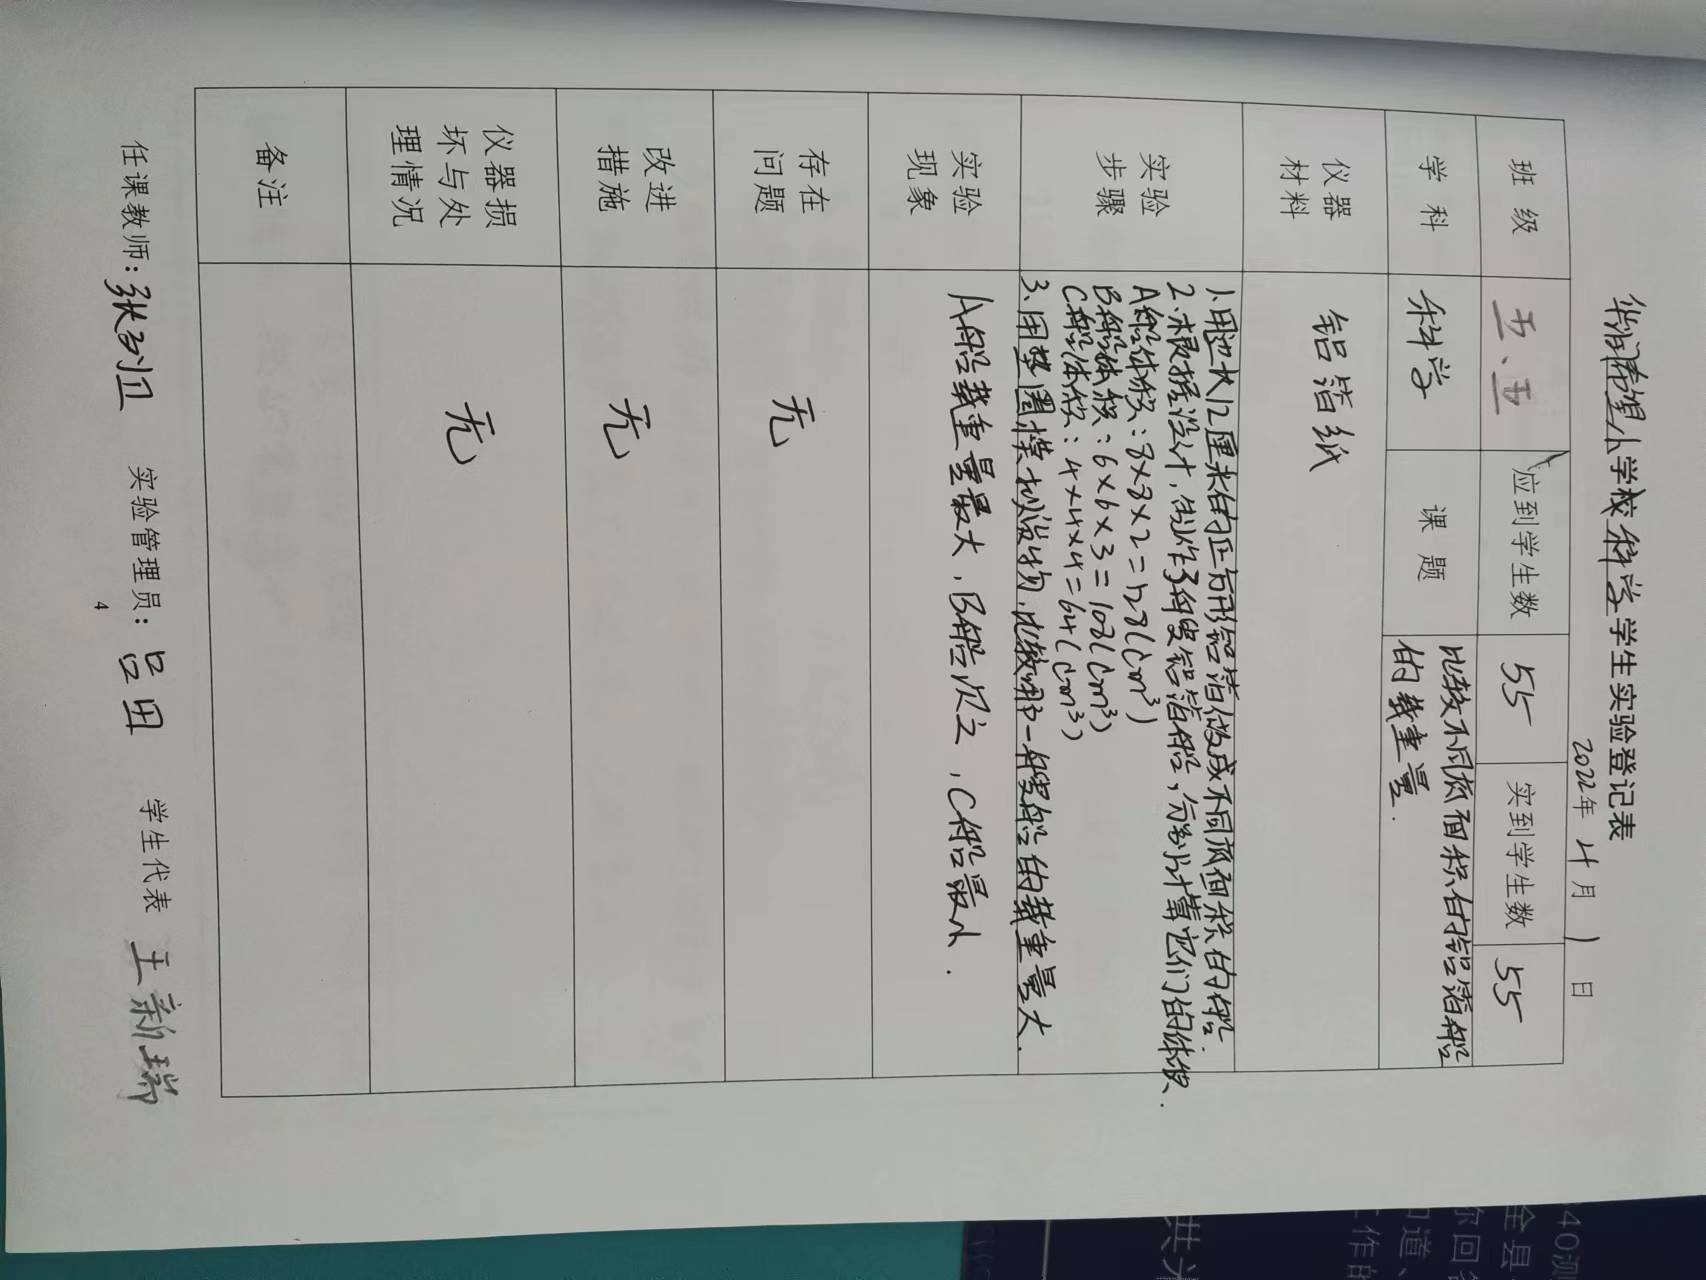 华润希望小学校科学学生实验登记表
2022年 4月 1日
班 级 五、五 应到学生数 55 实到学生数 55
学 科 科学 课 题 比较不同底面积的铝箔船
的载重量.
仪器
材料
铝箔纸
实验
步骤
1.用边长12厘米的正方形铝箔做成不同底面积的船.
2.根据设计,制作3艘铝箔船,分别计算它们的体积.
A船体积:8×8×2=128(cm³)
B船体积:6×6×3=108(cm³)
C船体积:4×4×4=64(cm³)
3、用垫圈模拟货物,比较哪一艘船的载重量大.
实验
现象
A船载重量最大,B船次之,C船最小.
存在
问题
无
改进
措施
无
仪器损
坏与处
理情况
无
备注
任课教师: 实验管理员: 吕田 学生代表 王新瑞
4
全县
道、
工作的
共